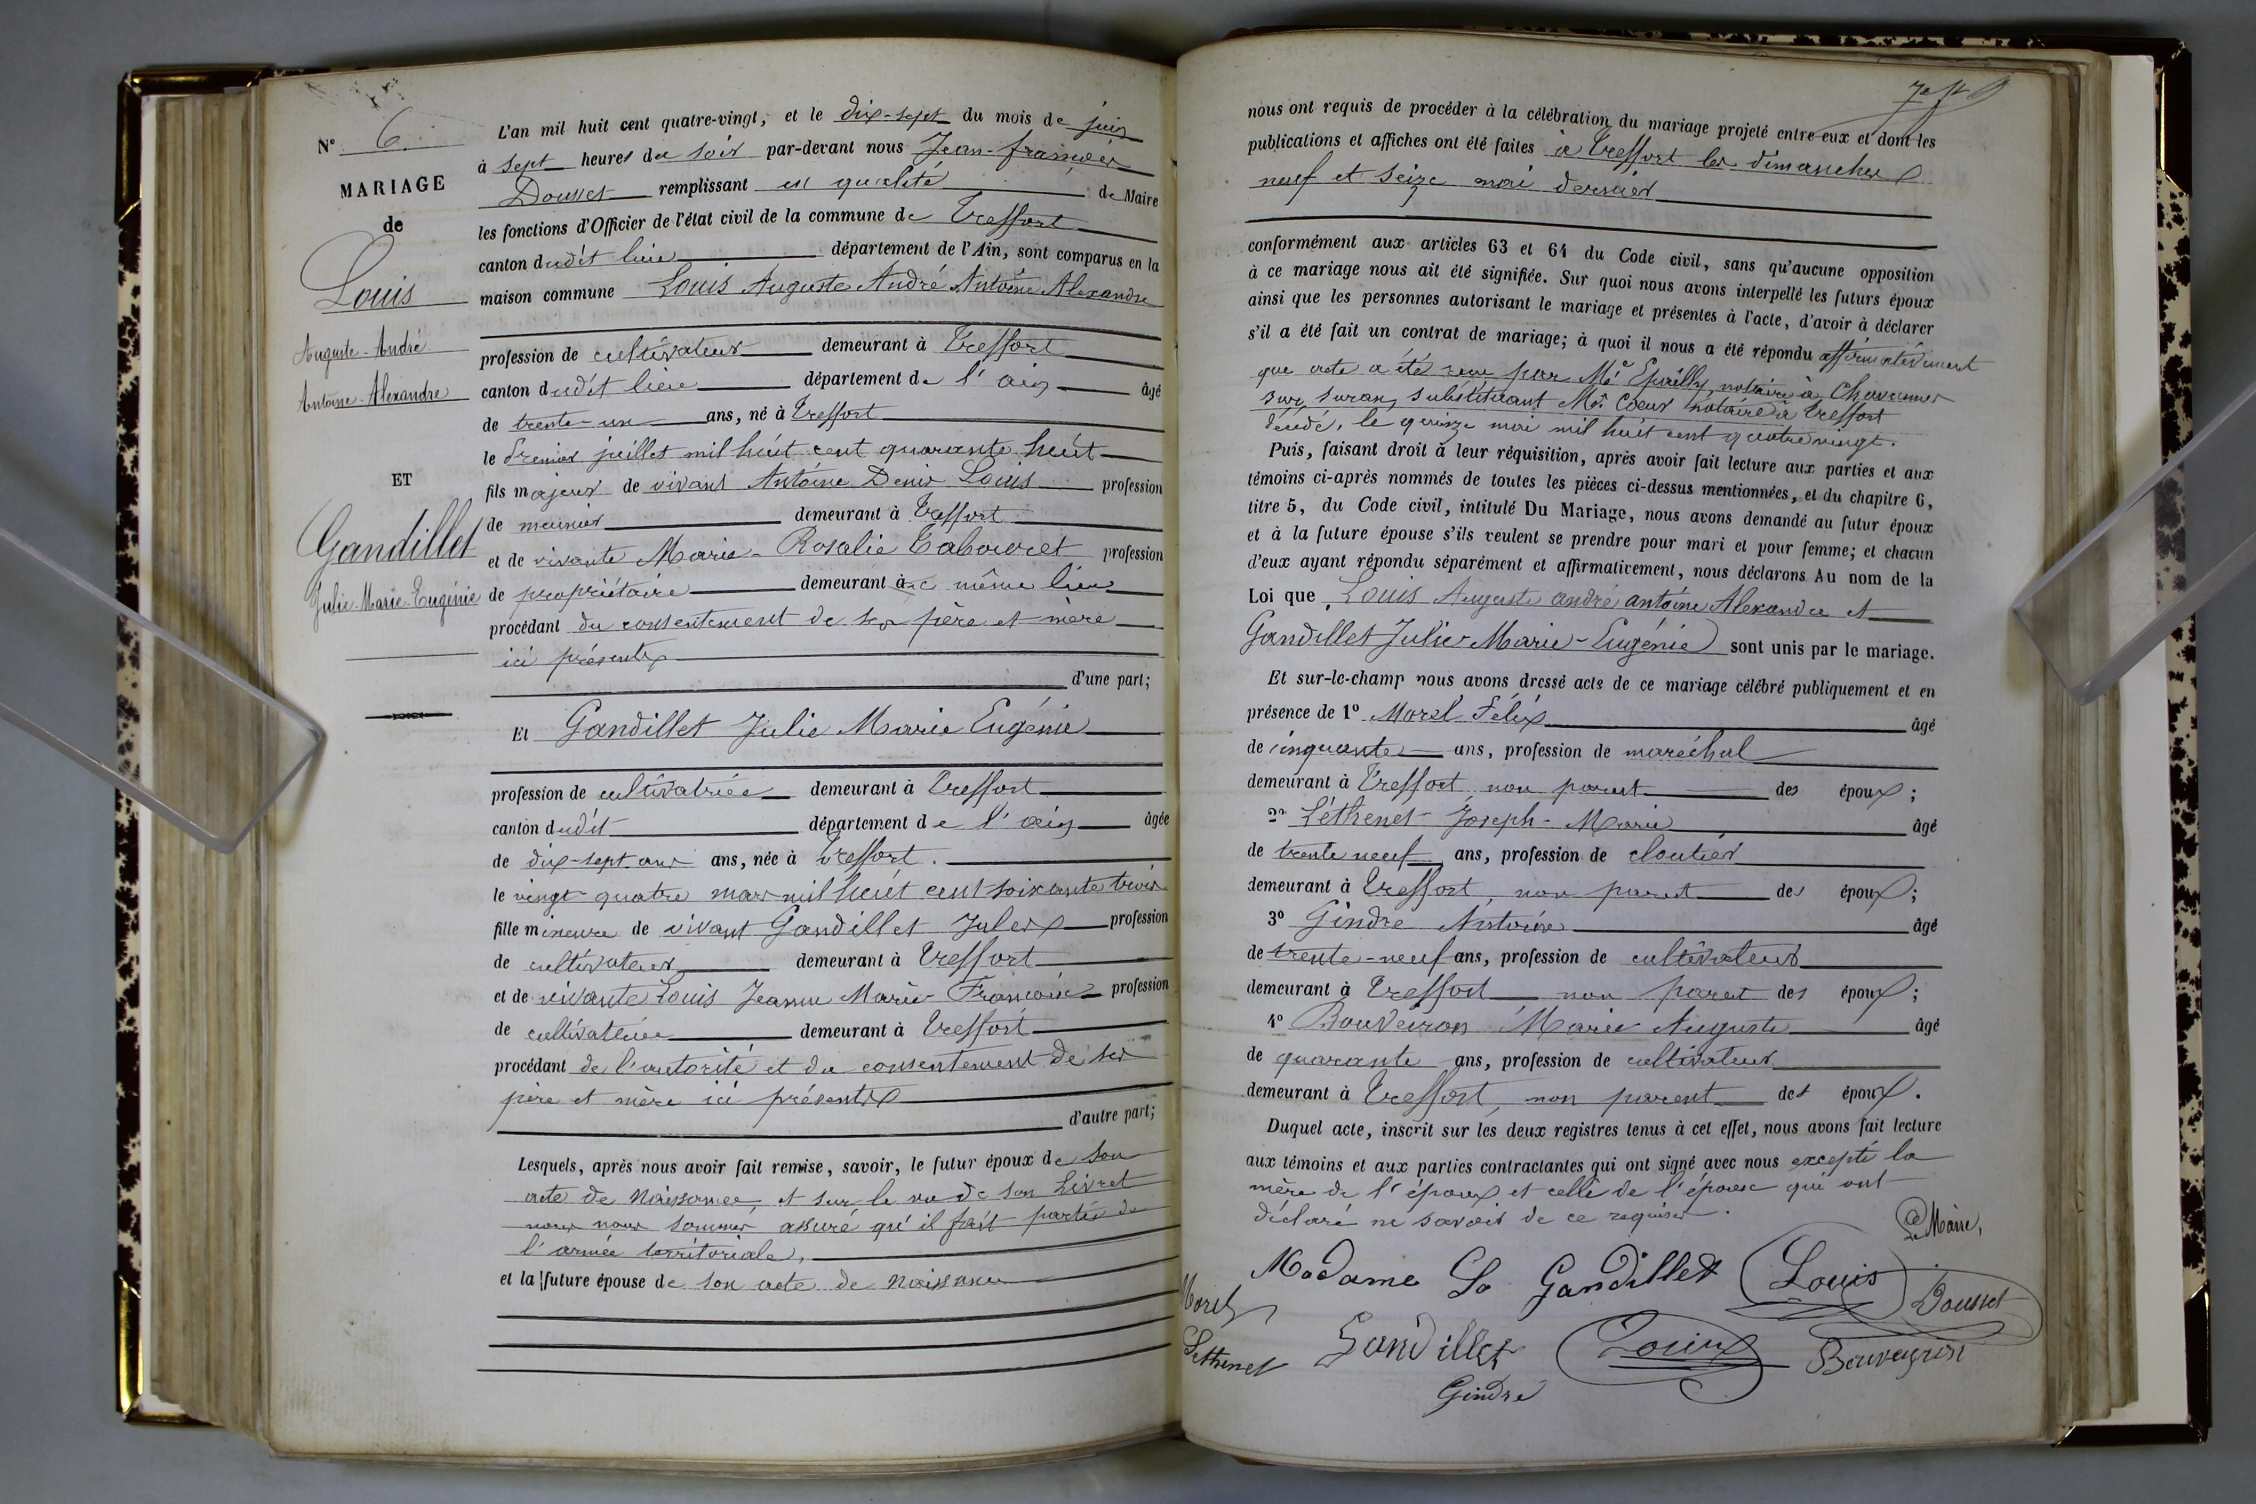 N° 6.
MARIAGE
de
Louis
Auguste-André
Antoine-Alexandre
ET
Gandillet
Julie-Marie-Eugénie
L'an mil huit cent quatre-vingt, et le dix-sept du mois de juin
à sept heures du soir par-devant nous Jean-françois
Dousset remplissant en qualité de Maire
les fonctions d'Officier de l'état civil de la commune de Treffort
canton dudit lieu département de l'Ain, sont comparus en la
maison commune Louis Auguste André Antoine Alexandre
profession de cultivateur demeurant à Treffort
canton dudit lieu département de l'ain âgé
de trente-un ans, né à Treffort
le premier juillet mil huit cent quarante huit
fils majeur de vivant Antoine Denis Louis profession
de meunier demeurant à Treffort
et de vivante Marie-Rosalie Tabouret profession
de propriétaire demeurant à même lieu
procédant du consentement de ses père et mère
ici présents
d'une part;
Et Gandillet Julie Marie Eugénie
profession de cultivatrice demeurant à Treffort
canton dudit département de l'ain âgée
de dix-sept ans ans, née à Treffort.
le vingt-quatre mars mil huit cent soixante trois
fille mineure de vivant Gandillet Jules profession
de cultivateur demeurant à Treffort
et de vivante Louis Jeanne Marie Françoise profession
de cultivatrice demeurant à Treffort
procédant de l'autorité et du consentement de ses
père et mère ici présents
d'autre part;
Lesquels, après nous avoir fait remise, savoir, le futur époux de son
acte de naissance, et sur le vu de son Livret
nous nous sommes assuré qu'il fait partie de
l'armée territoriale,
et la future épouse de son acte de naissance
nous ont requis de procéder à la célébration du mariage projeté entre eux et dont les
publications et affiches ont été faites à Treffort les dimanches
neuf et seize mai dernier
conformément aux articles 63 et 64 du Code civil, sans qu'aucune opposition
à ce mariage nous ait été signifiée. Sur quoi nous avons interpellé les futurs époux
ainsi que les personnes autorisant le mariage et présentes à l'acte, d'avoir à déclarer
s'il a été fait un contrat de mariage; à quoi il nous a été répondu affirmativement
que acte a été reçu par Me Epailly notaire à Chavannes
sur suran, substituant Me Coeur notaire à Treffort
décédé, le quinze mai mil huit cent quatre vingt.
Puis, faisant droit à leur réquisition, après avoir fait lecture aux parties et aux
témoins ci-après nommés de toutes les pièces ci-dessus mentionnées, et du chapitre 6,
titre 5, du Code civil, intitulé Du Mariage, nous avons demandé au futur époux
et à la future épouse s'ils veulent se prendre pour mari et pour femme; et chacun
d'eux ayant répondu séparément et affirmativement, nous déclarons Au nom de la
Loi que Louis Auguste andré antoine Alexandre et
Gandillet Julie Marie-Eugénie sont unis par le mariage.
Et sur-le-champ nous avons dressé acte de ce mariage célébré publiquement et en
présence de 1° Morel Félix âgé
de cinquante ans, profession de maréchal
demeurant à Treffort non parent des époux;
2° Léthenet Joseph-Marie âgé
de trente neuf ans, profession de cloutier
demeurant à Treffort, non parent des époux;
3° Gindre Antoine âgé
de trente-neuf ans, profession de cultivateur
demeurant à Treffort non parent des époux;
4° Bouveiron Marie Auguste âgé
de quarante ans, profession de cultivateur
demeurant à Treffort, non parent des époux.
Duquel acte, inscrit sur les deux registres tenus à cet effet, nous avons fait lecture
aux témoins et aux parties contractantes qui ont signé avec nous excepté la
mère de l'époux et celle de l'épouse qui ont
déclaré ne savoir de ce requises.
Le Maire,
Madame Lo Gandillet Louis Dousset
Morel
Léthenet Gandillet Louis Bouveyron
Gindre